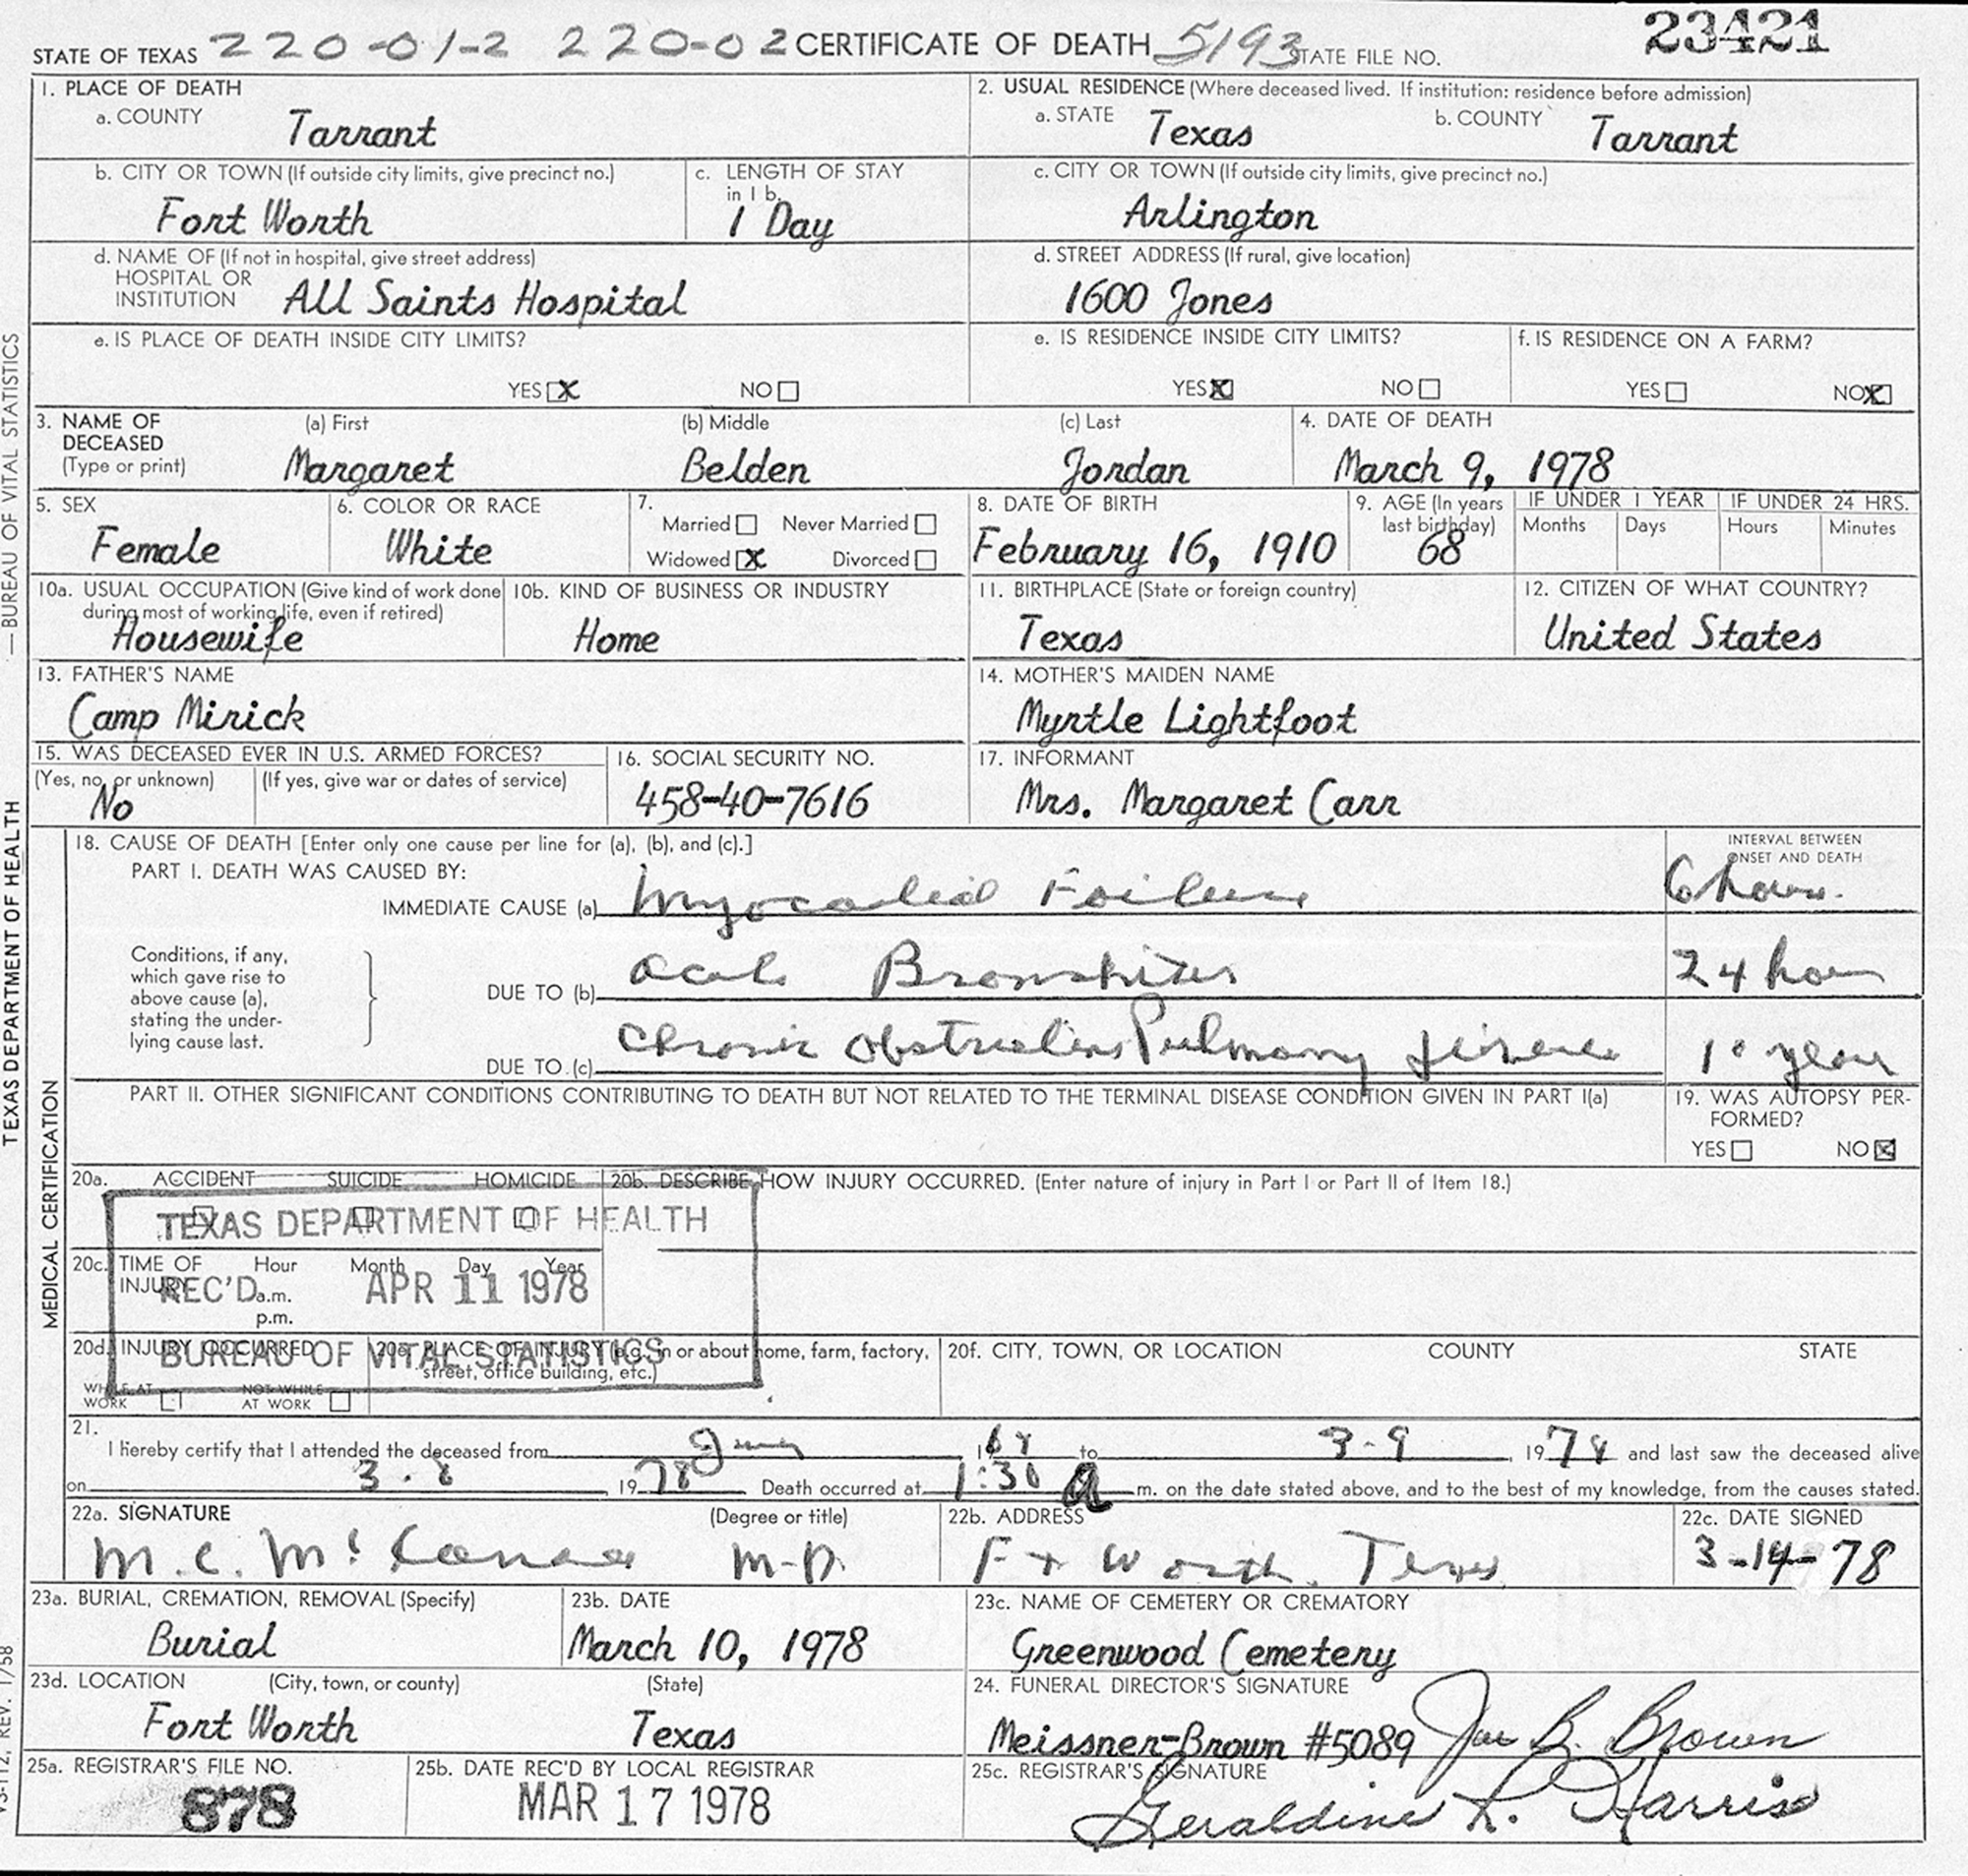 STATE OF TEXAS 220-01-2 220-02 CERTIFICATE OF DEATH 5193 STATE FILE NO. 23421
1. PLACE OF DEATH
a. COUNTY Tarrant
2. USUAL RESIDENCE (Where deceased lived. If institution: residence before admission)
a. STATE Texas b. COUNTY Tarrant
b. CITY OR TOWN (If outside city limits, give precinct no.)
Fort Worth
c. LENGTH OF STAY
in 1 b.
1 Day
c. CITY OR TOWN (If outside city limits, give precinct no.)
Arlington
d. NAME OF (If not in hospital, give street address)
HOSPITAL OR
INSTITUTION All Saints Hospital
d. STREET ADDRESS (If rural, give location)
1600 Jones
e. IS PLACE OF DEATH INSIDE CITY LIMITS?
YES X NO
e. IS RESIDENCE INSIDE CITY LIMITS?
YES X NO
f. IS RESIDENCE ON A FARM?
YES NO X
3. NAME OF
DECEASED
(Type or print)
(a) First
Margaret
(b) Middle
Belden
(c) Last
Jordan
4. DATE OF DEATH
March 9, 1978
5. SEX
Female
6. COLOR OR RACE
White
7.
Married Never Married
Widowed X Divorced
8. DATE OF BIRTH
February 16, 1910
9. AGE (In years
last birthday)
68
IF UNDER 1 YEAR
Months Days
IF UNDER 24 HRS.
Hours Minutes
10a. USUAL OCCUPATION (Give kind of work done
during most of working life, even if retired)
Housewife
10b. KIND OF BUSINESS OR INDUSTRY
Home
11. BIRTHPLACE (State or foreign country)
Texas
12. CITIZEN OF WHAT COUNTRY?
United States
13. FATHER'S NAME
Camp Mirick
14. MOTHER'S MAIDEN NAME
Myrtle Lightfoot
15. WAS DECEASED EVER IN U.S. ARMED FORCES?
(Yes, no, or unknown) (If yes, give war or dates of service)
No
16. SOCIAL SECURITY NO.
458-40-7616
17. INFORMANT
Mrs. Margaret Carr
18. CAUSE OF DEATH [Enter only one cause per line for (a), (b), and (c).]
INTERVAL BETWEEN
ONSET AND DEATH
PART I. DEATH WAS CAUSED BY:
IMMEDIATE CAUSE (a) Myocardial Failure 6 hours.
Conditions, if any,
which gave rise to
above cause (a),
stating the under-
lying cause last.
DUE TO (b) Acute Bronchitis 24 hour
DUE TO (c) Chronic Obstructive Pulmonary disease 10 year
PART II. OTHER SIGNIFICANT CONDITIONS CONTRIBUTING TO DEATH BUT NOT RELATED TO THE TERMINAL DISEASE CONDITION GIVEN IN PART I(a)
19. WAS AUTOPSY PER-
FORMED?
YES NO X
20a. ACCIDENT SUICIDE HOMICIDE
20b. DESCRIBE HOW INJURY OCCURRED. (Enter nature of injury in Part I or Part II of Item 18.)
TEXAS DEPARTMENT OF HEALTH
20c. TIME OF INJURY Hour Month Day Year
a.m.
p.m.
REC'D APR 11 1978
BUREAU OF VITAL STATISTICS
20d. INJURY OCCURRED
WHILE AT WORK NOT WHILE AT WORK
20e. PLACE OF INJURY (e.g., in or about home, farm, factory,
street, office building, etc.)
20f. CITY, TOWN, OR LOCATION COUNTY STATE
21.
I hereby certify that I attended the deceased from 19 to 3-9, 1978 and last saw the deceased alive
on 3-8, 1978 Death occurred at 1:30 a m. on the date stated above, and to the best of my knowledge, from the causes stated.
22a. SIGNATURE (Degree or title)
M.C. M.D.
22b. ADDRESS
Ft Worth, Texas
22c. DATE SIGNED
3-14-78
23a. BURIAL, CREMATION, REMOVAL (Specify)
Burial
23b. DATE
March 10, 1978
23c. NAME OF CEMETERY OR CREMATORY
Greenwood Cemetery
23d. LOCATION (City, town, or county) (State)
Fort Worth Texas
24. FUNERAL DIRECTOR'S SIGNATURE
Meissner-Brown #5089 Joe B. Brown
25a. REGISTRAR'S FILE NO.
878
25b. DATE REC'D BY LOCAL REGISTRAR
MAR 17 1978
25c. REGISTRAR'S SIGNATURE
Geraldine R. Harris
MEDICAL CERTIFICATION
TEXAS DEPARTMENT OF HEALTH —BUREAU OF VITAL STATISTICS
VS-112, REV. 1/58